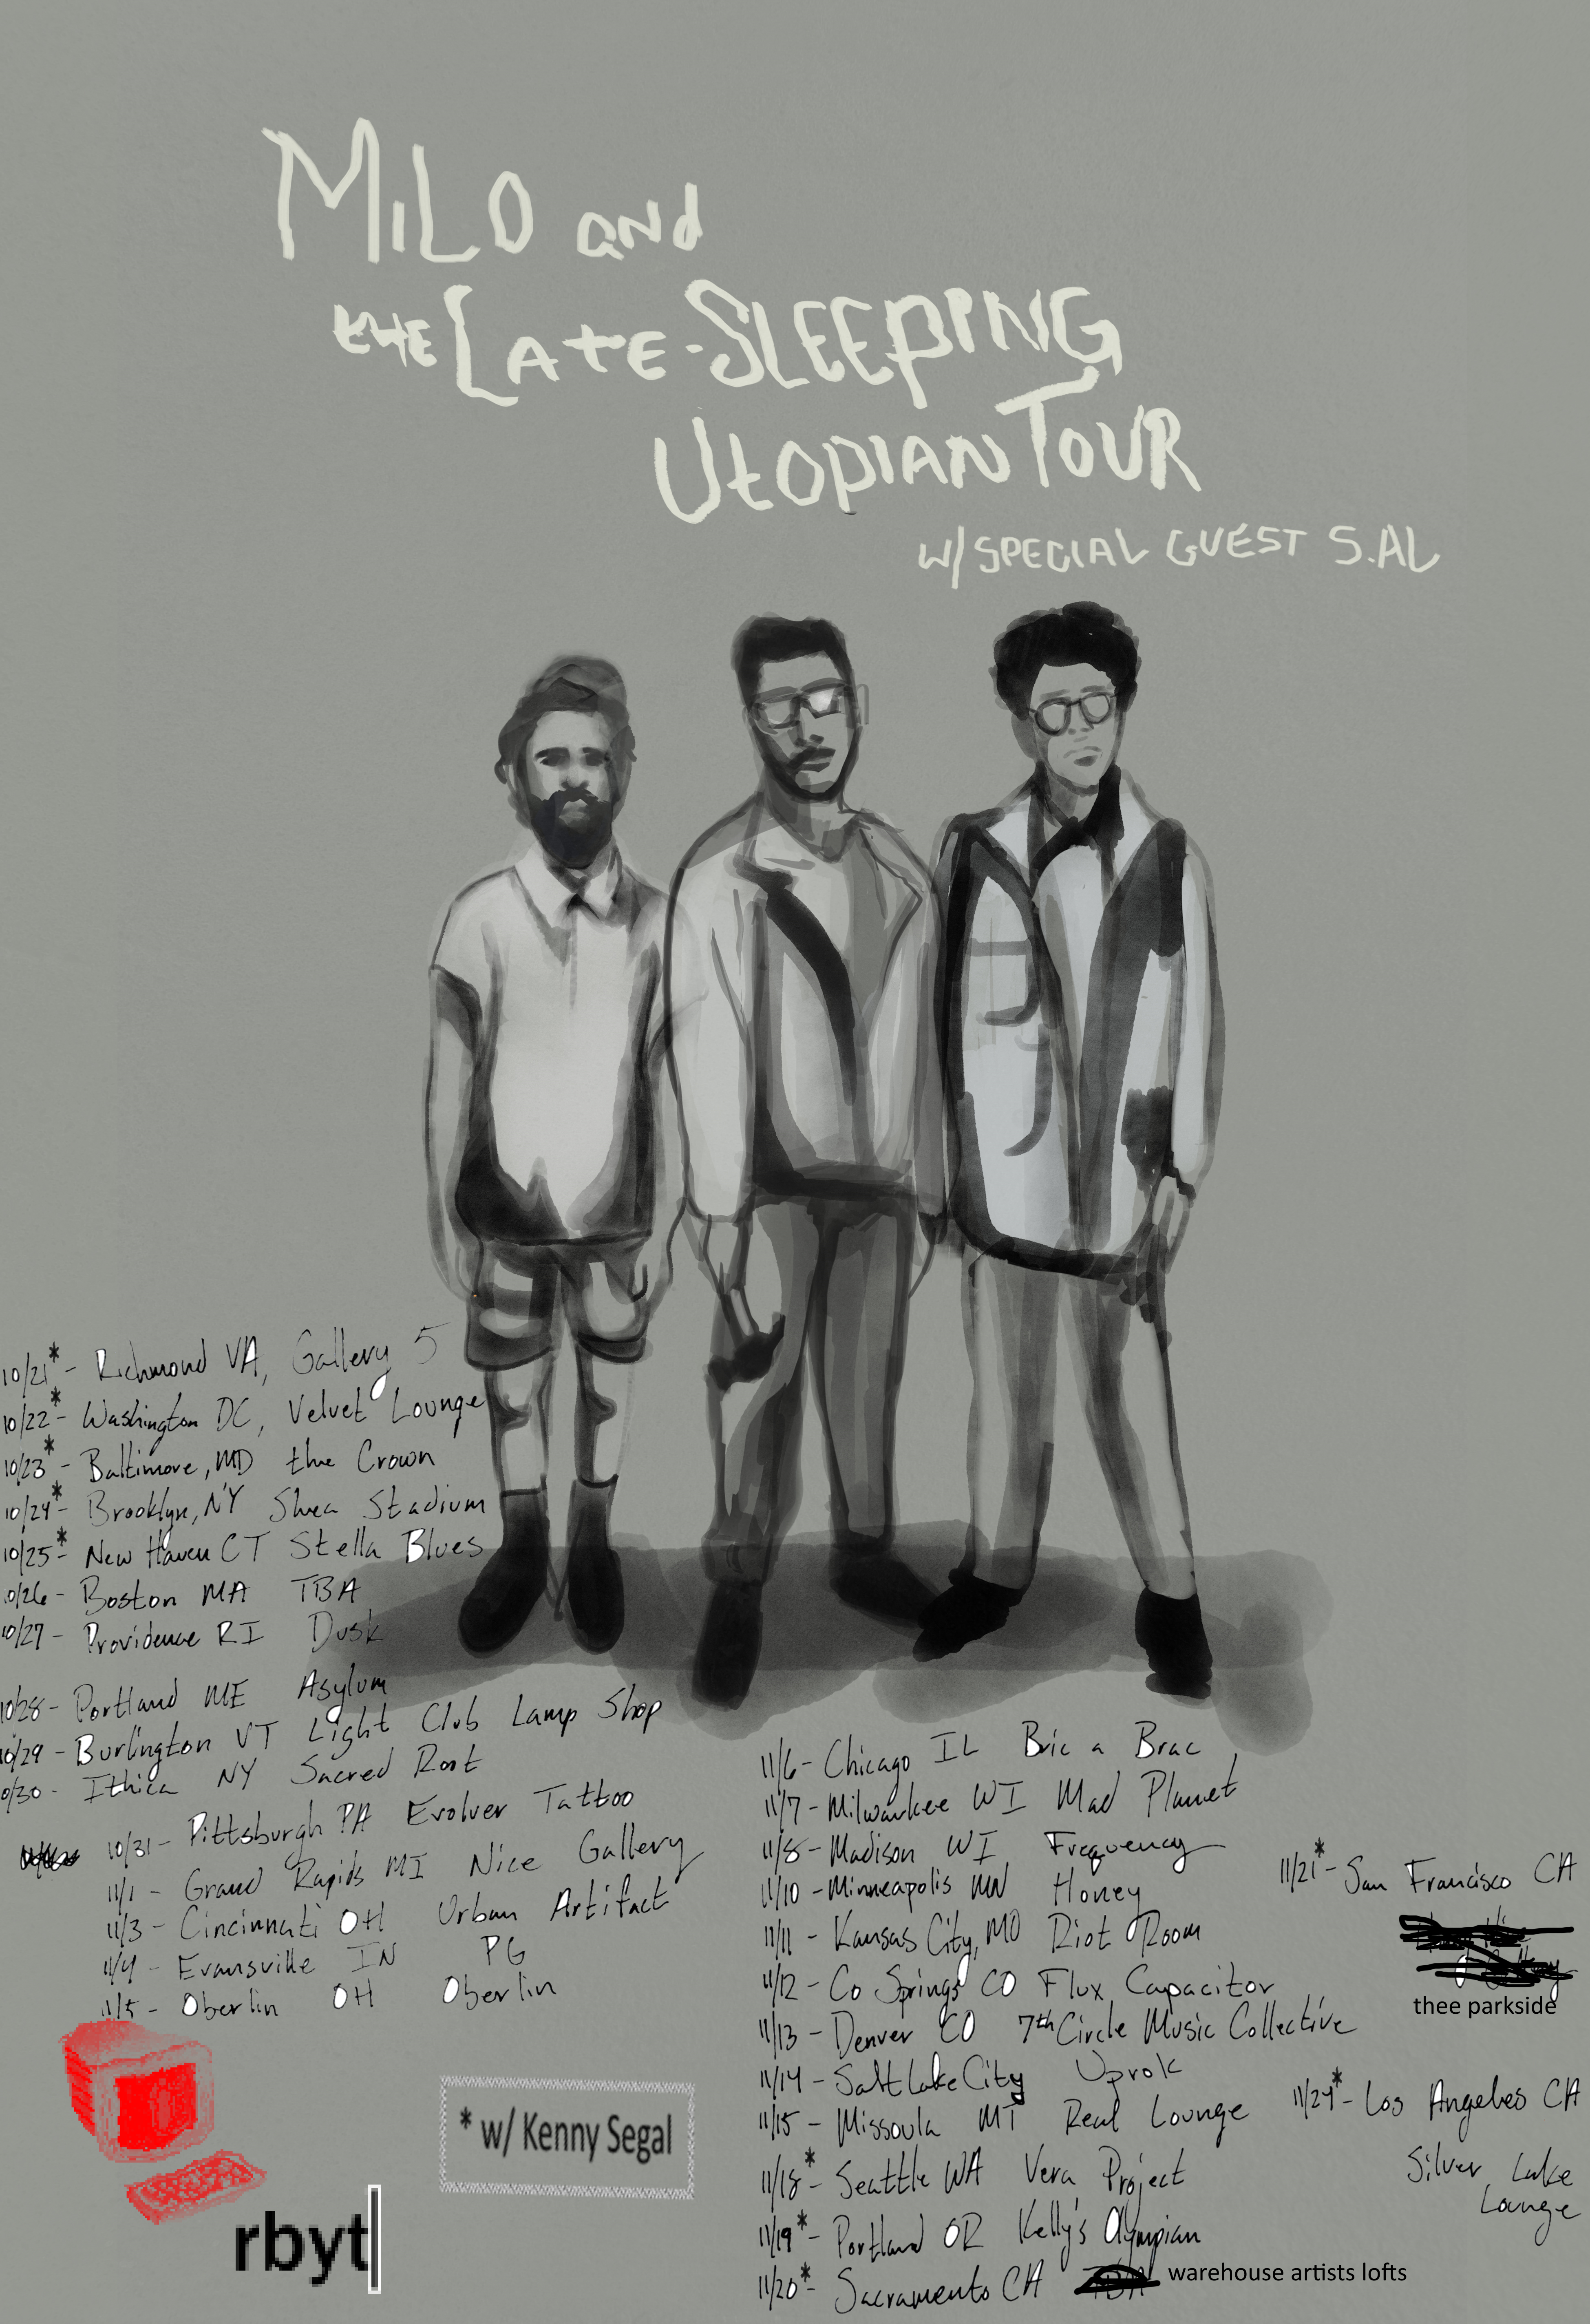 MiLO and
the LATE-SLEEPING
UtOPIAN TOUR
W/ SPECIAL GUEST S.AL
10/21* - Richmond VA, Gallery 5
10/22* - Washington DC, Velvet Lounge
10/23* - Baltimore, MD the Crown
10/24* - Brooklyn, NY Shea Stadium
10/25* - New Haven CT Stella Blues
10/26 - Boston MA TBA
10/27 - Providence RI Dusk
10/28 - Portland ME Asylum
10/29 - Burlington VT Light Club Lamp Shop
0/30 - Ithica NY Sacred Root
10/31 - Pittsburgh PA Evolver Tattoo
11/1 - Grand Rapids MI Nice Gallery
11/3 - Cincinnati OH Urban Artifact
11/4 - Evansville IN PG
11/5 - Oberlin OH Oberlin
11/6 - Chicago IL Bric a Brac
11/7 - Milwaukee WI Mad Planet
11/8 - Madison WI Frequency
11/10 - Minneapolis MN Honey
11/11 - Kansas City, MO Riot Room
11/12 - Co Springs CO Flux Capacitor
11/13 - Denver CO 7th Circle Music Collective
11/14 - Salt Lake City Uprok
11/15 - Missoula MT Real Lounge
11/18* - Seattle WA Vera Project
11/19* - Portland OR Kelly's Olympian
11/20* - Sacramento CA TBA warehouse artists lofts
11/21* - San Francisco CA
thee parkside
11/24* - Los Angeles CA
Silver Lake
Lounge
* w/ Kenny Segal
rbyt